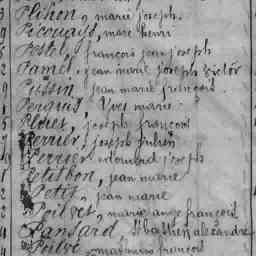 Plihon, marie joseph.
Picouays, marc henri
Postel, françois jean joseph
Pamel, jean marie joseph victor
Pussin, jean marie françois.
Perquis, Yves marie.
Plores, joseph françois
Perrier, joseph julien
Perrier, édouard joseph
Petitbon, jean marie
Petit, jean marie
Poilvet, marie ange françois
Pansard, Mathieu alexandre
Poilvé, mathurin françois